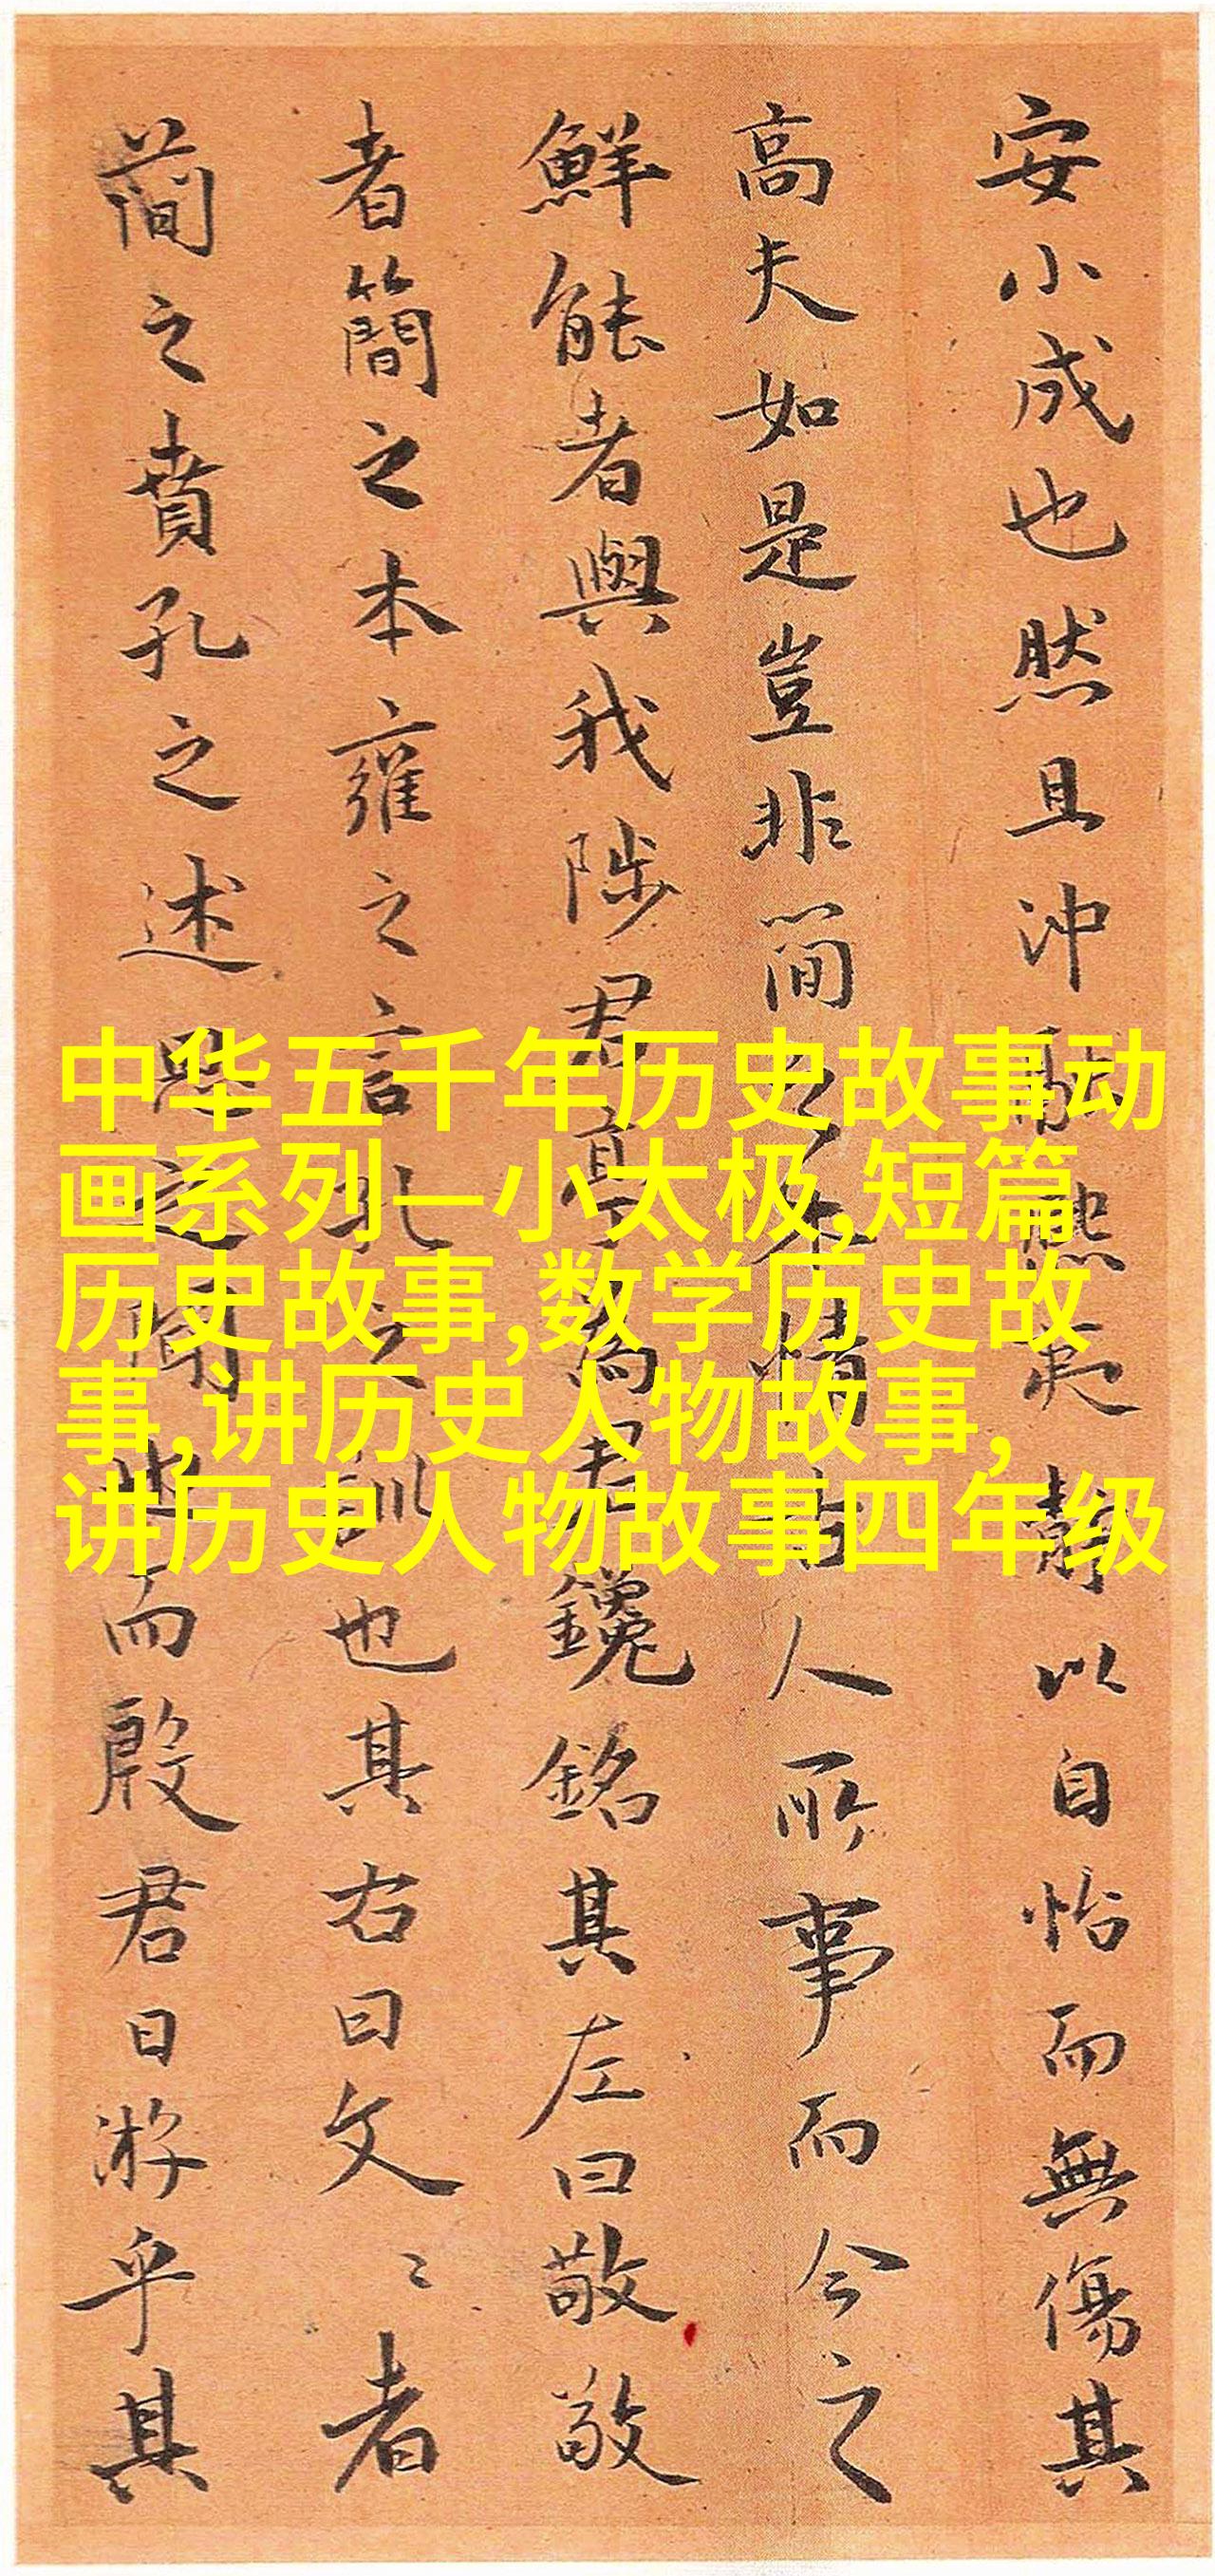 安小成也然且沖融熙夷靜以自怡而無傷其
高夫如是豈非簡之本情古人所事而今之
鮮能者與我陟君亭為君鑱銘其左曰敬敬
者簡之本雍之言孔之訓也其右曰文文者
簡之賁孔之述 之 也而殷君日游乎其
中华五千年历史故事动
画系列—小太极,短篇
历史故事,数学历史故
事,讲历史人物故事,
讲历史人物故事四年级